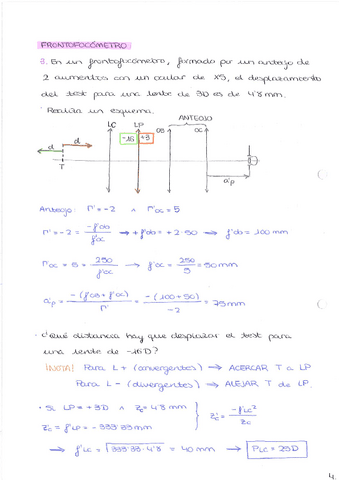 FRONTOFOCÓMETRO
3. En un frontofocómetro, formado por un anteojo de
2 aumentos con un ocular de x5, el desplazamiento
del test para una lente de 3D es de 4'8 mm.
· Realiza un esquema.
ANTEOJO
LC LP OB OC
-16 +3
d d
T a'p
Anteojo: Γ' = -2 ∧ Γ'oc = 5
Γ' = -2 = -f'ob / f'oc → + f'ob = +2·50 → f'ob = 100 mm
Γ'oc = 5 = 250 / f'oc → f'oc = 250 / 5 = 50 mm
a'p = -(f'OB + f'OC) / Γ' = -(100+50) / -2 = 75 mm
· ¿Qué distancia hay que desplazar el test para
una lente de -16D?
¡NOTA! Para L + (convergentes) → ACERCAR T a LP
Para L - (divergentes) → ALEJAR T de LP.
· Si LP = +3D ∧ Zc = 4'8 mm
Z'c = -f'LC² / Zc
Z'c = f'LP = -333'33 mm
→ f'LC = √333'33·4'8 = 40 mm → PLC = 25D
4